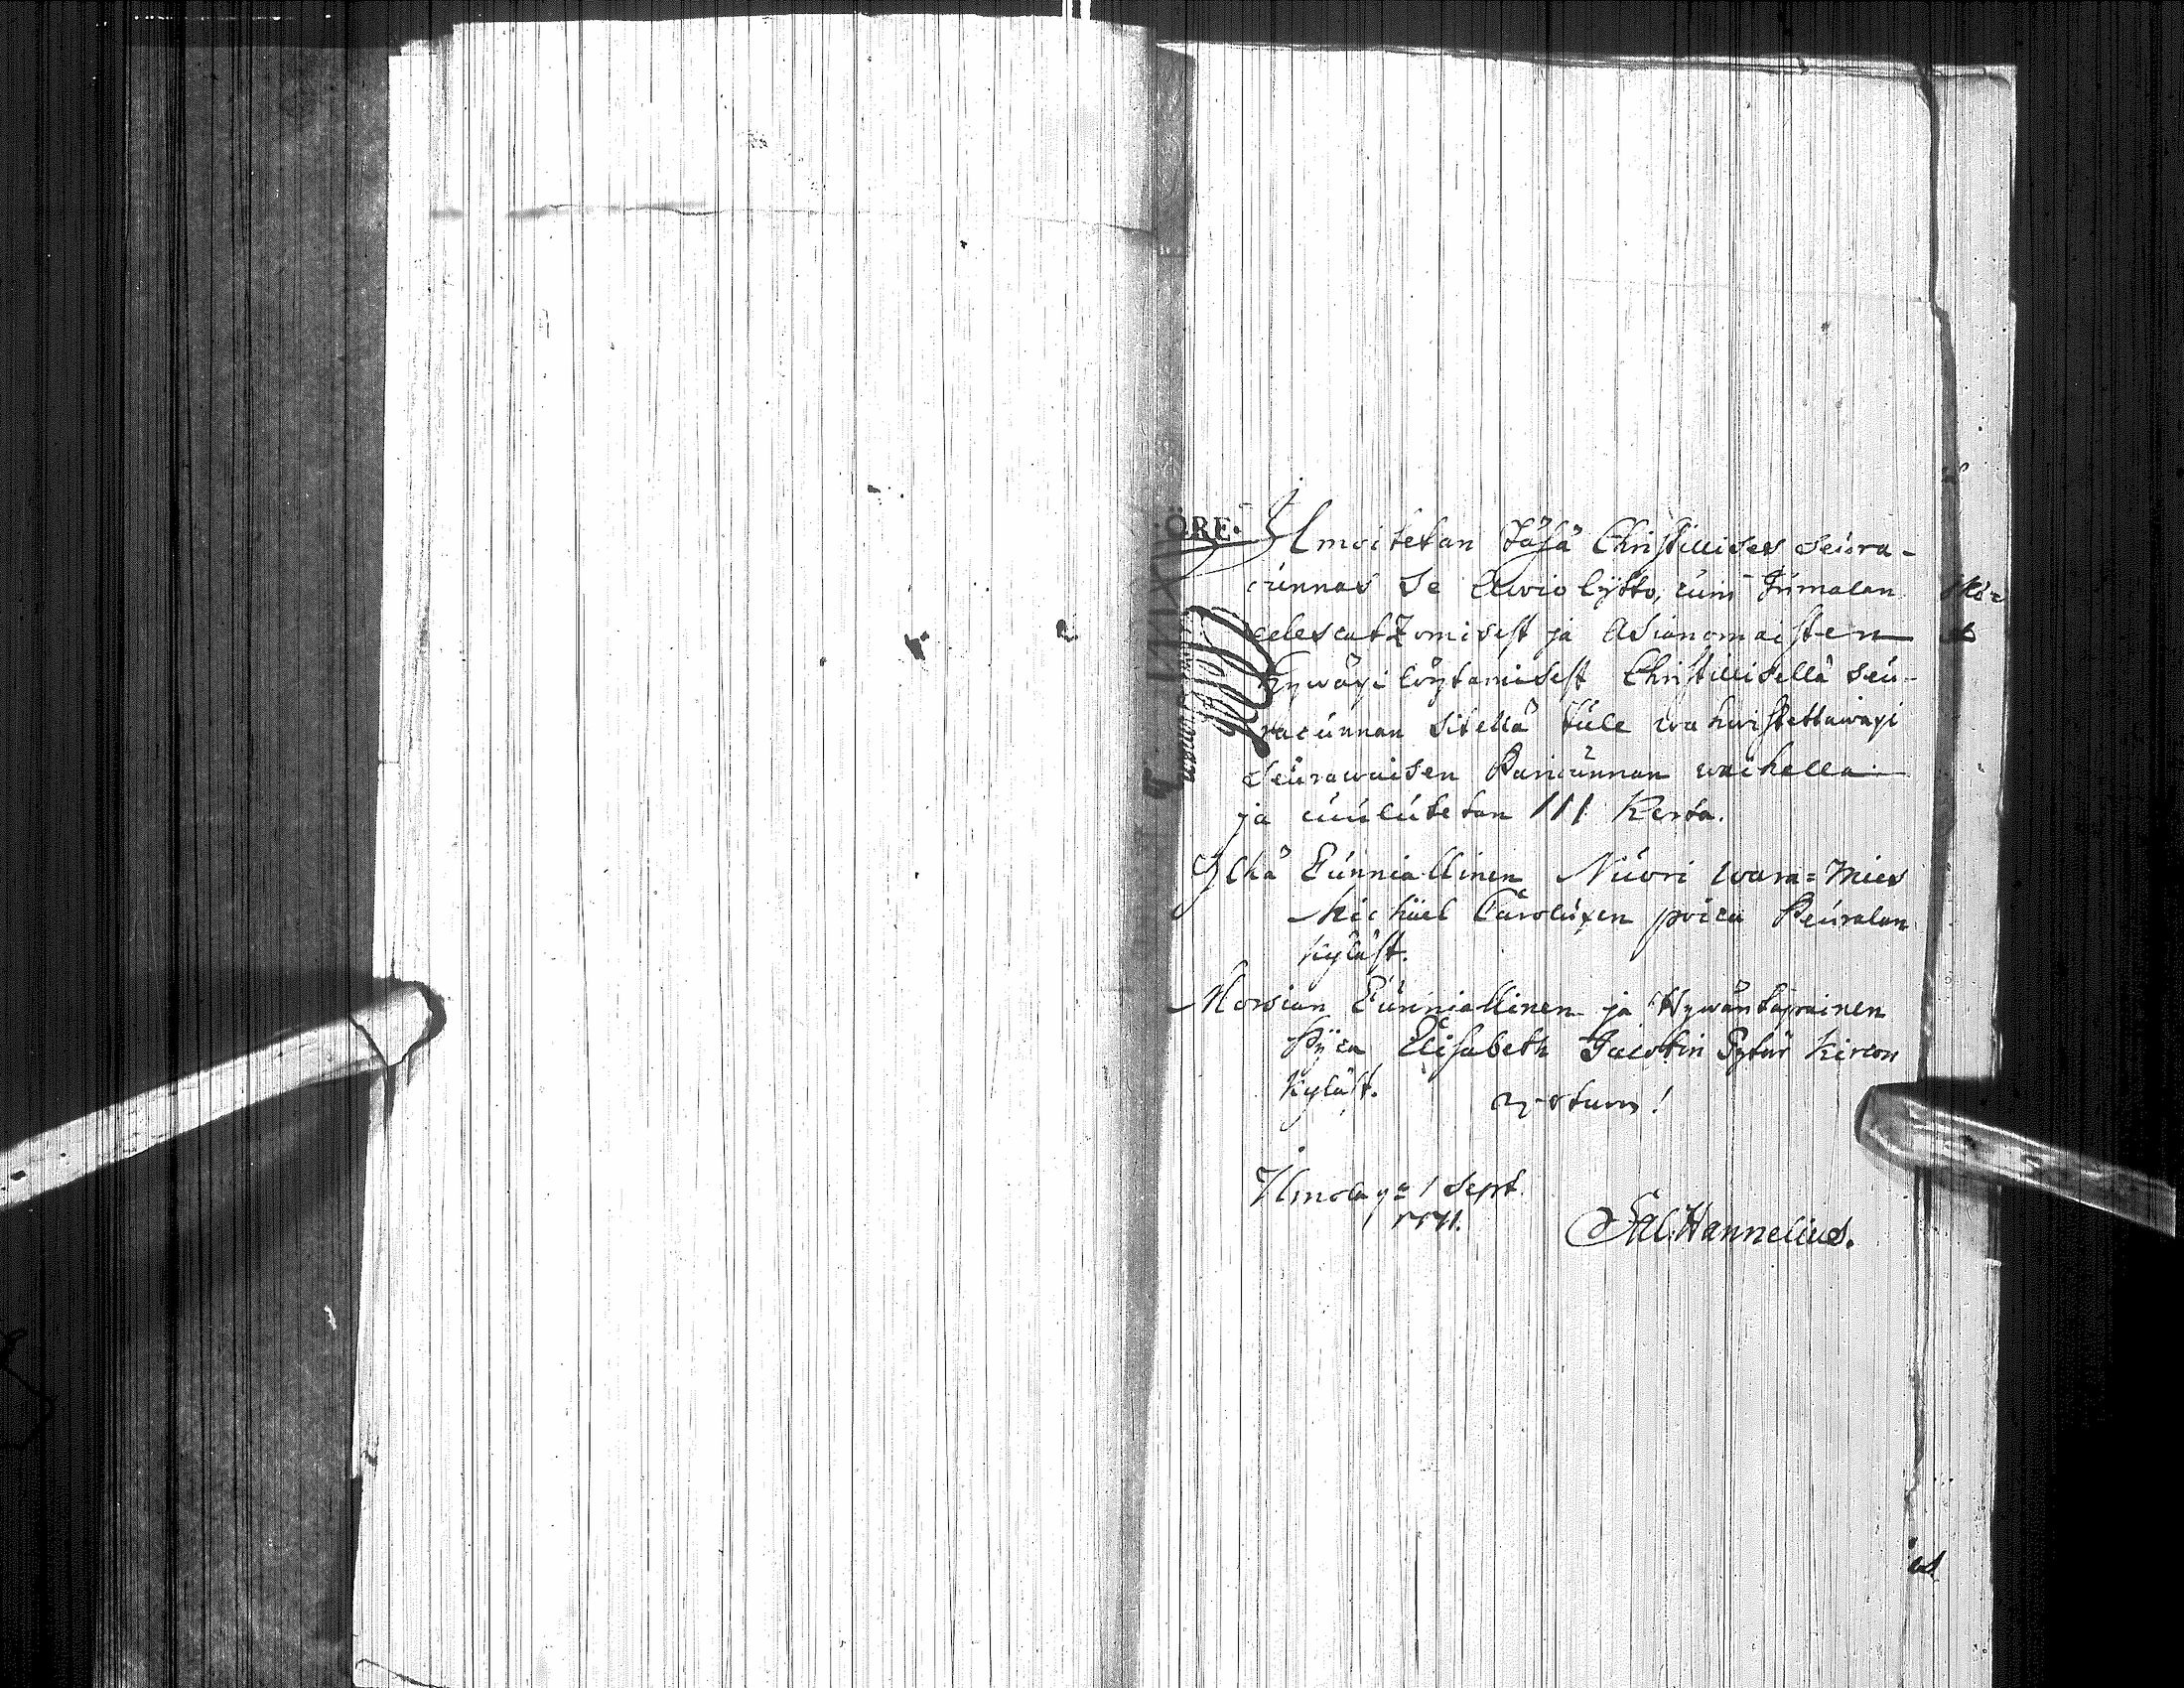 ÖRE.
Ilmoitetan täsä Christillises seura-
cunnas se Awio käsky, cuin Jumalan
edescatzomisest ja Asianomaisten
hywäxi löytämisest Christillisellä seu-
racunnan sitellä tule wahwistettawaxi
seurawaisen Paricunnan waihella
ja cuulutetan III Kerta.
Ylkä Cunniallinen Nuori wara=Mies
Michäel Caroluxen poica Peuralan
Kyläst.
Morsian Cunniallinen ja Hywäntapainen
Pijca Elisabeth Jacobin Tytär Kircon
Kyläst.
Ilmola 1 Sept.
Sal. Hannelius.